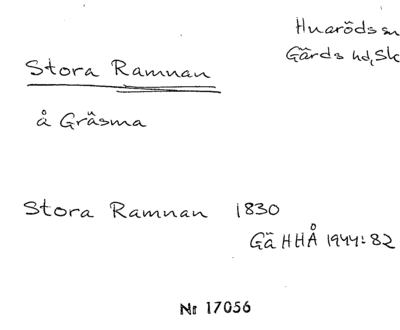 Huaröds sn
Gärds hd, Sk
Stora Ramnan
å Gräsma
Stora Ramnan 1830
Gä HHÅ 1944: 82
Nr 17056